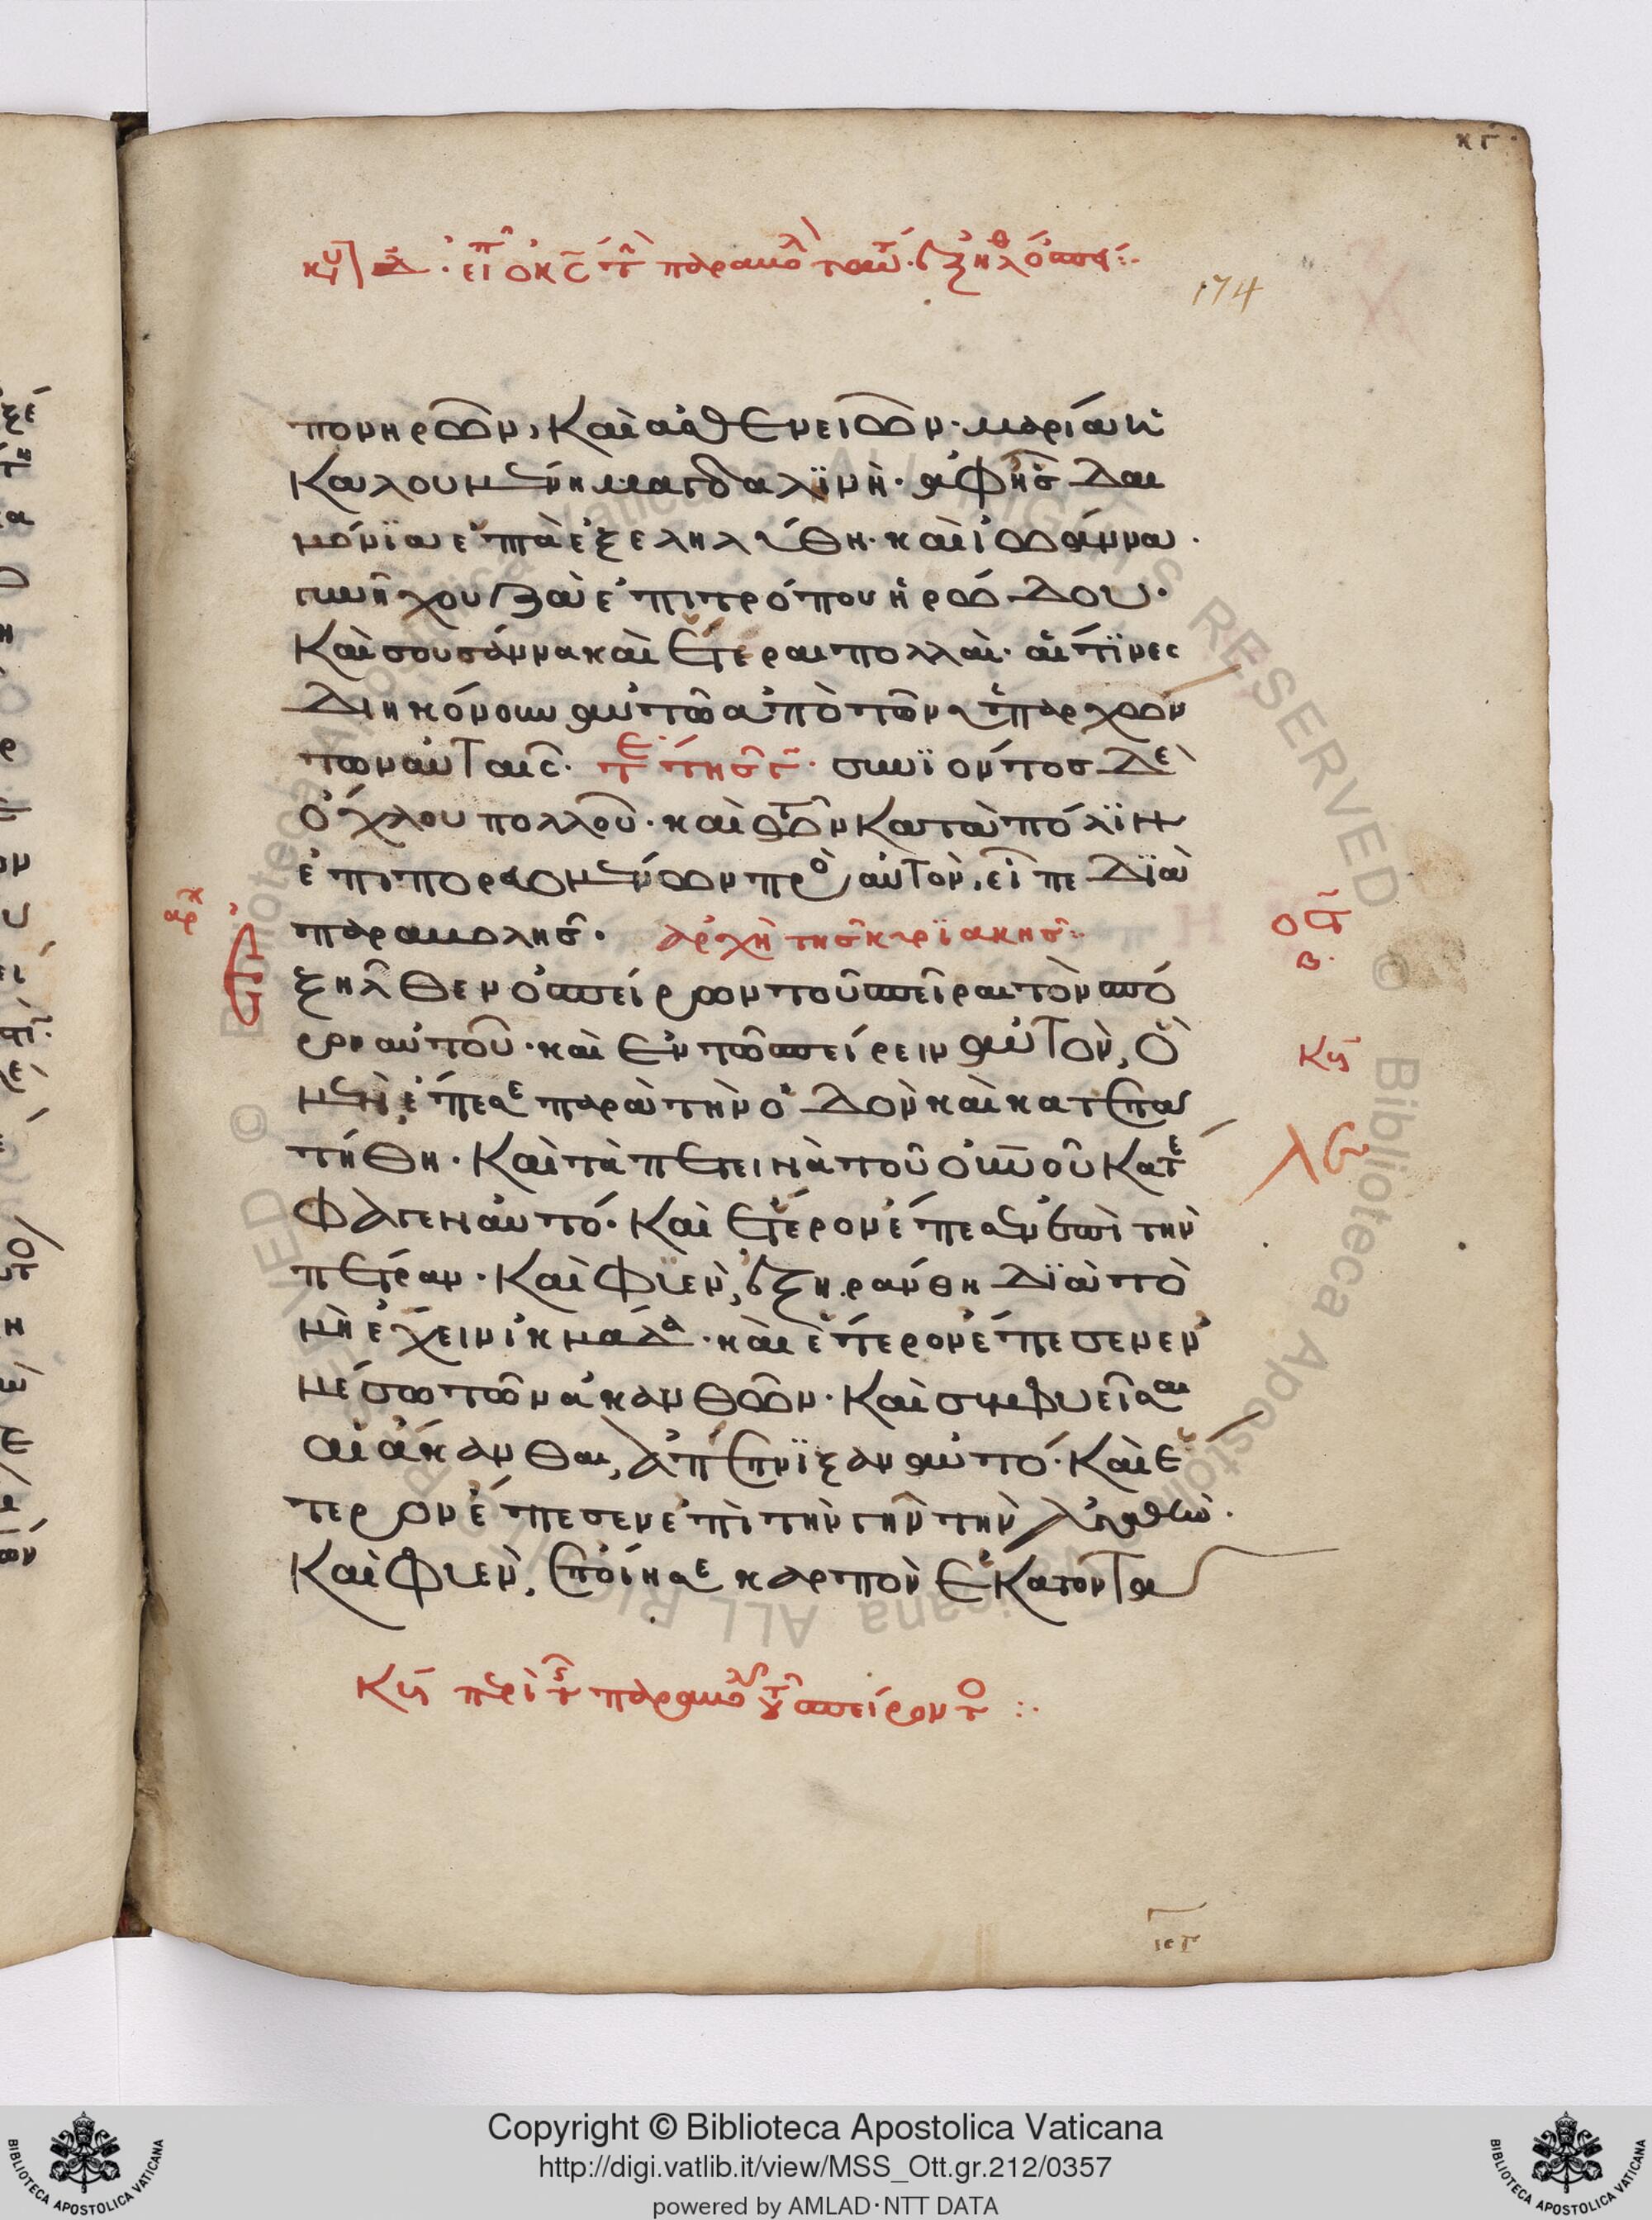 κγ
κυ δ · εἶπεν ὁ κς τὴν παραβολὴν ταύτην · ἐξῆλθεν ὁ σπεί :·
174
πονηρῶν, καὶ ἀσθενειῶν · μαρία ἡ
καλουμένη μαγδαλϊνὴ · ἀφ ἧς δαι
μόνϊα επτὰ ἐξεληλύθη · καὶ ϊωάννα
γυνὴ χουζᾶ ἐπιτρόπου ἡρώδου ·
καὶ σουσάννα καὶ ἕτεραι πολλαὶ · αἵτϊνες
διηκόνουν αὐτῶ ἀπὸ τῶν ὑπαρχόν
των αὐταῖς · τέ τῆς ς · συνϊόντος δὲ
ὄχλου πολλοῦ · καὶ τῶν κατὰ πόλϊν
ἐπιπορευομένων πρὸς αὐτὸν, εἶπε δϊὰ
αρχ
παραβολῆς · ἀρχὴ τῆς κυρϊακῆς :·
ξῆλθεν ὁ σπείρων τοῦ σπεῖραι τὸν σπό
β ·
ρον αὐτοῦ · καὶ ἐν τῶ σπείρειν αὐτὸν, ὃ
μὲν ἔπεσε παρὰ τὴν ὁδὸν καὶ κατεπα
τήθη · καὶ τὰ πετεινὰ τοῦ οὐνοῦ κατέ
φαγεν αὐτό · καὶ ἕτερον ἔπεσεν ἐπὶ τὴν
πέτραν · καὶ φϋὲν, ἐξηράνθη δϊὰ τὸ
μὴ ἔχειν ἰκμάδα · καὶ ἕτερον ἔπεσεν ἐν
μέσω τῶν ἀκανθῶν · καὶ συμφυεῖσαι
αἱ ἄκανθαι, ἀπέπνϊξαν αὐτό · καὶ ἕ
τερον ἔπεσεν ἐπὶ τὴν γῆν τὴν ἀγαθὴν ·
καὶ φυὲν, ἐποίησε καρπὸν ἑκατοντα
περὶ τῆς παραβολῆς τοῦ σπείροντο :·
Copyright © Biblioteca Apostolica Vaticana
http://digi.vatlib.it/view/MSS_Ott.gr.212/0357
powered by AMLAD·NTT DATA
BIBLIOTECA APOSTOLICA VATICANA
BIBLIOTECA APOSTOLICA VATICANA